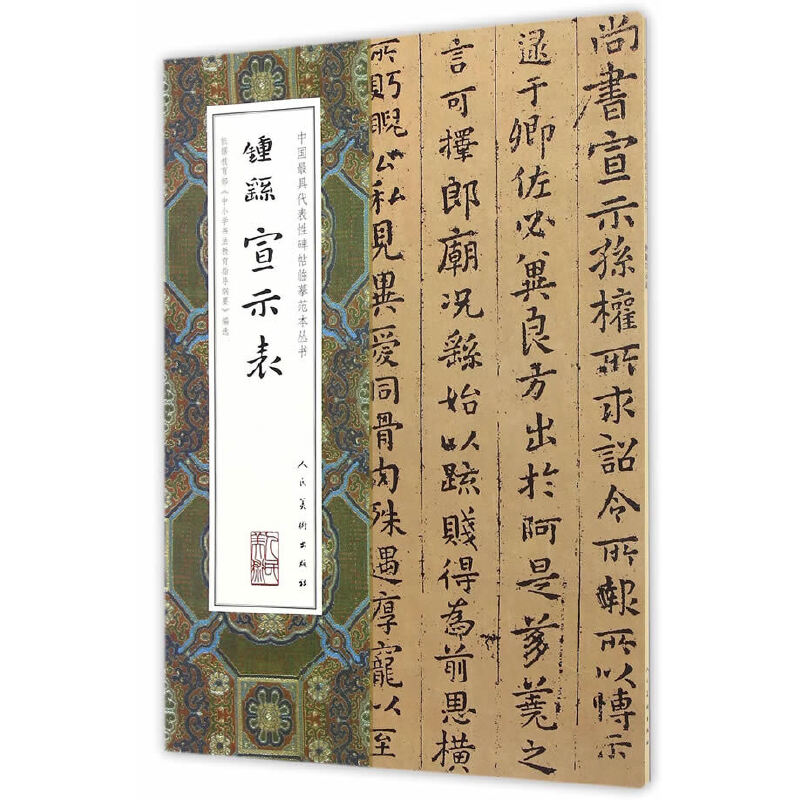 尚書宣示孫權所求詔令所報所以博示
逮于卿佐必冀良方出於阿是芻蕘之
言可擇郎廟况繇始以疏賤得為前恩橫
所眄睨公私見異愛同骨肉殊遇厚寵以至
中国最具代表性碑帖临摹范本丛书
鍾繇 宣示表
依据教育部《中小学书法教育指导纲要》编选
人民美術出版社
人民美術
人民美術出版社